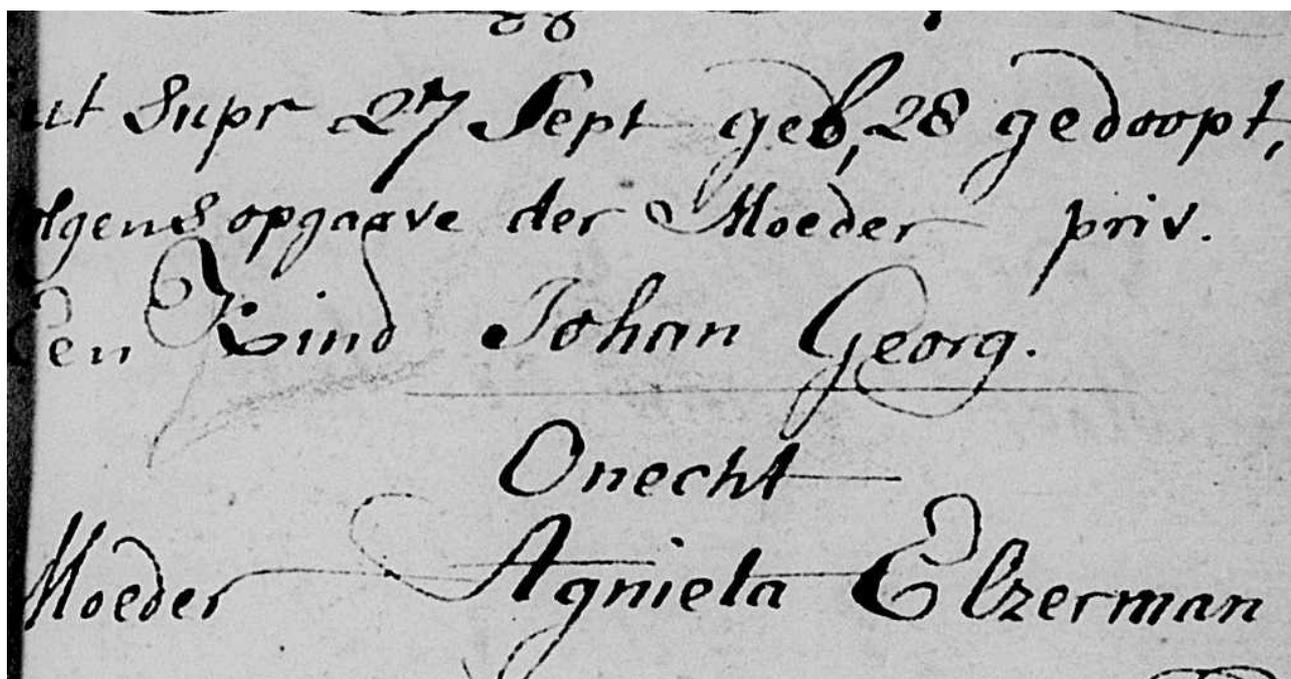 ut Supr 27 Sept geb, 28 gedoopt,
olgens opgaave der Moeder priv.
Een Kind Johan Georg.
Onecht
Moeder Agnieta Elzerman